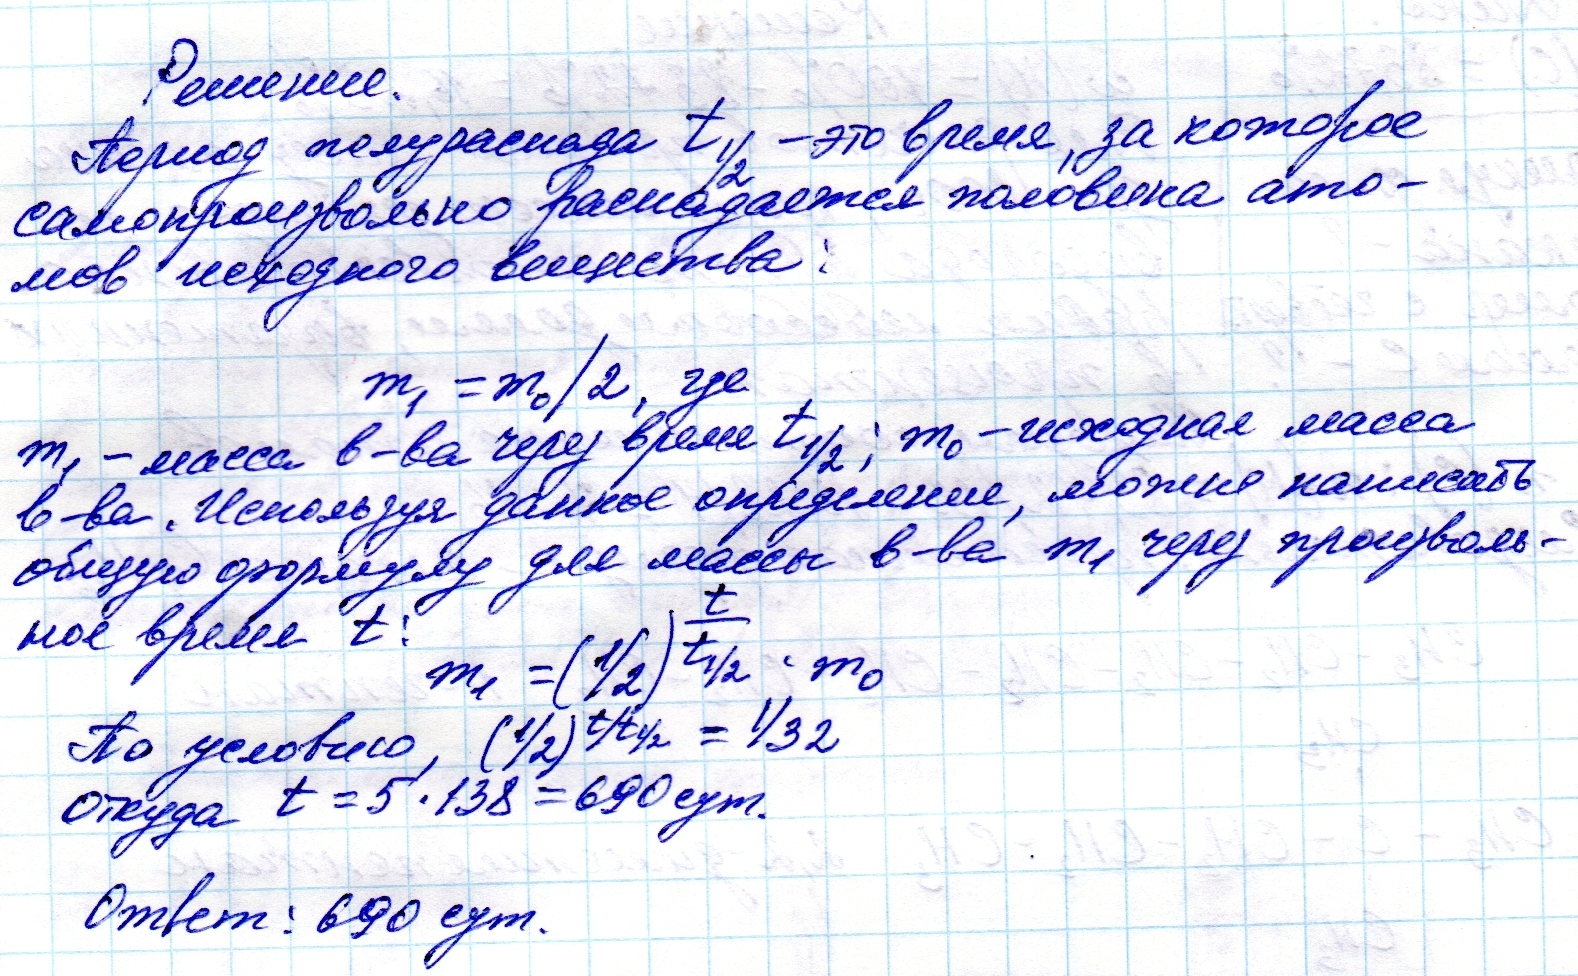 Решение.
Период полураспада t1/2 – это время, за которое
самопроизвольно распадается половина ато-
мов исходного вещества:
m₁ = m₀/2, где
m₁ – масса в-ва через время t1/2; m₀ – исходная масса
в-ва. Используя данное определение, можно написать
общую формулу для массы в-ва m₁ через произволь-
ное время t:
m₁ = (1/2)^(t/t1/2) · m₀
По условию, (1/2)^(t/t1/2) = 1/32
откуда t = 5 · 138 = 690 сут.
Ответ: 690 сут.